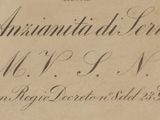 Anzianità di Ser
M. V. S. N.
n Regio Decreto n° 8 del 23